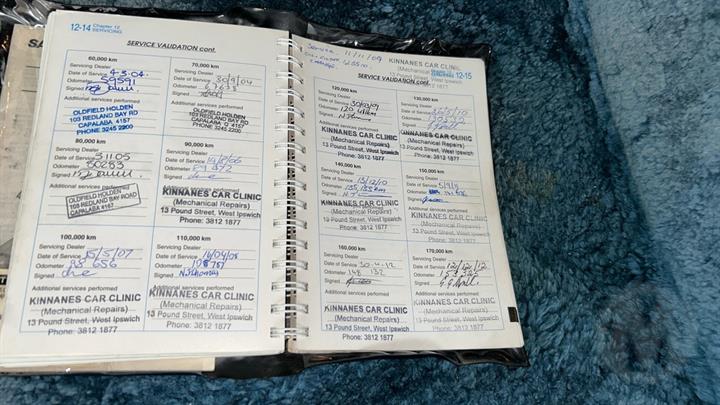 12-14 Chapter 12
SERVICING
SERVICE VALIDATION cont.
60,000 km
Servicing Dealer
Date of Service 4-3-04
Odometer 59591
Signed
Additional services performed
OLDFIELD HOLDEN
103 REDLAND BAY RD
CAPALABA 4157
PHONE 3245 2200
70,000 km
Servicing Dealer
Date of Service 30/9/04
Odometer 67638
Signed
Additional services performed
OLDFIELD HOLDEN
103 REDLAND BAY RD
CAPALABA Q 4157
PHONE 3245 2200
80,000 km
Servicing Dealer
Date of Service 31105
Odometer 80283
Signed
Additional services performed
OLDFIELD HOLDEN
103 REDLAND BAY ROAD
CAPALABA 4157
90,000 km
Servicing Dealer
Date of Service
Odometer
Signed
Additional services performed
KINNANES CAR CLINIC
(Mechanical Repairs)
13 Pound Street, West Ipswich
Phone: 3812 1877
100,000 km
Servicing Dealer
Date of Service 15/5/07
Odometer 95 656
Signed
Additional services performed
KINNANES CAR CLINIC
(Mechanical Repairs)
13 Pound Street, West Ipswich
Phone: 3812 1877
110,000 km
Servicing Dealer
Date of Service 16/04/08
Odometer 108757
Signed
Additional services performed
KINNANES CAR CLINIC
(Mechanical Repairs)
13 Pound Street, West Ipswich
Phone: 3812 1877
Service 11/11/09
KINNANES CAR CLINIC
(Mechanical Repairs)
13 Pound Street, West Ipswich
12-15
Phone: 3812 1877
SERVICE VALIDATION cont.
120,000 km
Servicing Dealer
Date of Service
Odometer
Signed
Additional services performed
KINNANES CAR CLINIC
(Mechanical Repairs)
13 Pound Street, West Ipswich
Phone: 3812 1877
130,000 km
Servicing Dealer
Date of Service
Odometer
Signed
KINNANES CAR CLINIC
(Mechanical Repairs)
13 Pound Street, West Ipswich
Phone: 3812 1877
140,000 km
Servicing Dealer
Date of Service 13/12/10
Odometer
Signed
Additional services performed
KINNANES CAR CLINIC
(Mechanical Repairs)
13 Pound Street, West Ipswich
Phone: 3812 1877
150,000 km
Servicing Dealer
Date of Service 5/9/11
Odometer
Signed
Additional services performed
KINNANES CAR CLINIC
(Mechanical Repairs)
13 Pound Street, West Ipswich
Phone: 3812 1877
160,000 km
Servicing Dealer
Date of Service 30-4-12
Odometer 148 132
Signed
Additional services performed
KINNANES CAR CLINIC
(Mechanical Repairs)
13 Pound Street, West Ipswich
Phone: 3812 1877
170,000 km
Servicing Dealer
Date of Service 12/12/12
Odometer
Signed
Additional services performed
KINNANES CAR CLINIC
(Mechanical Repairs)
13 Pound Street, West Ipswich
Phone: 3812 1877